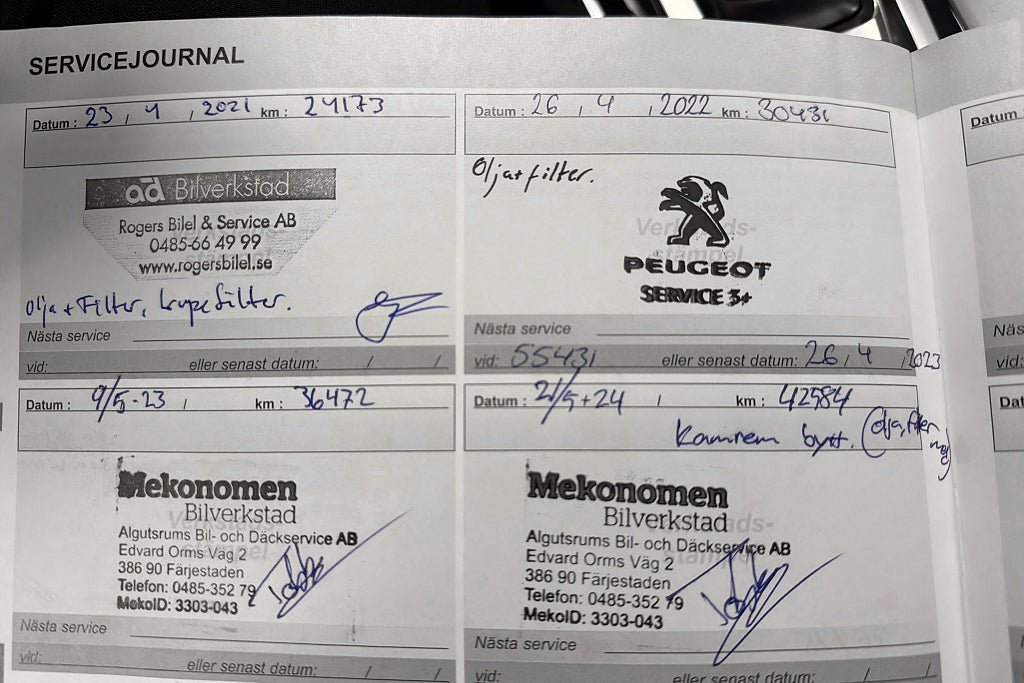 SERVICEJOURNAL
Datum : 23 , 4 , 2021 km : 24173
ad Bilverkstad
Rogers Bilel & Service AB
0485-66 49 99
www.rogersbilel.se
Olja + Filter, kupefilter.
Nästa service
vid: eller senast datum: / /
Datum : 26 , 4 , 2022 km : 30431
Olja + filter.
Verkstads-
stämpel
PEUGEOT
SERVICE 3+
Nästa service
vid: 55431 eller senast datum: 26 / 4 , 2023
Datum : 9/5-23 / km : 36472
Mekonomen
Bilverkstad
Algutsrums Bil- och Däckservice AB
Edvard Orms Väg 2
386 90 Färjestaden
Telefon: 0485-352 79
MekoID: 3303-043
Nästa service
vid: eller senast datum: / /
Datum : 21/5 + 24 / km : 42584
Kamrem bytt. (olja, filter
Mekonomen
Bilverkstad
Algutsrums Bil- och Däckservice AB
Edvard Orms Väg 2
386 90 Färjestaden
Telefon: 0485-352 79
MekoID: 3303-043
Nästa service
vid: eller senast datum: / /
Datum
Näs
vid:
Dat